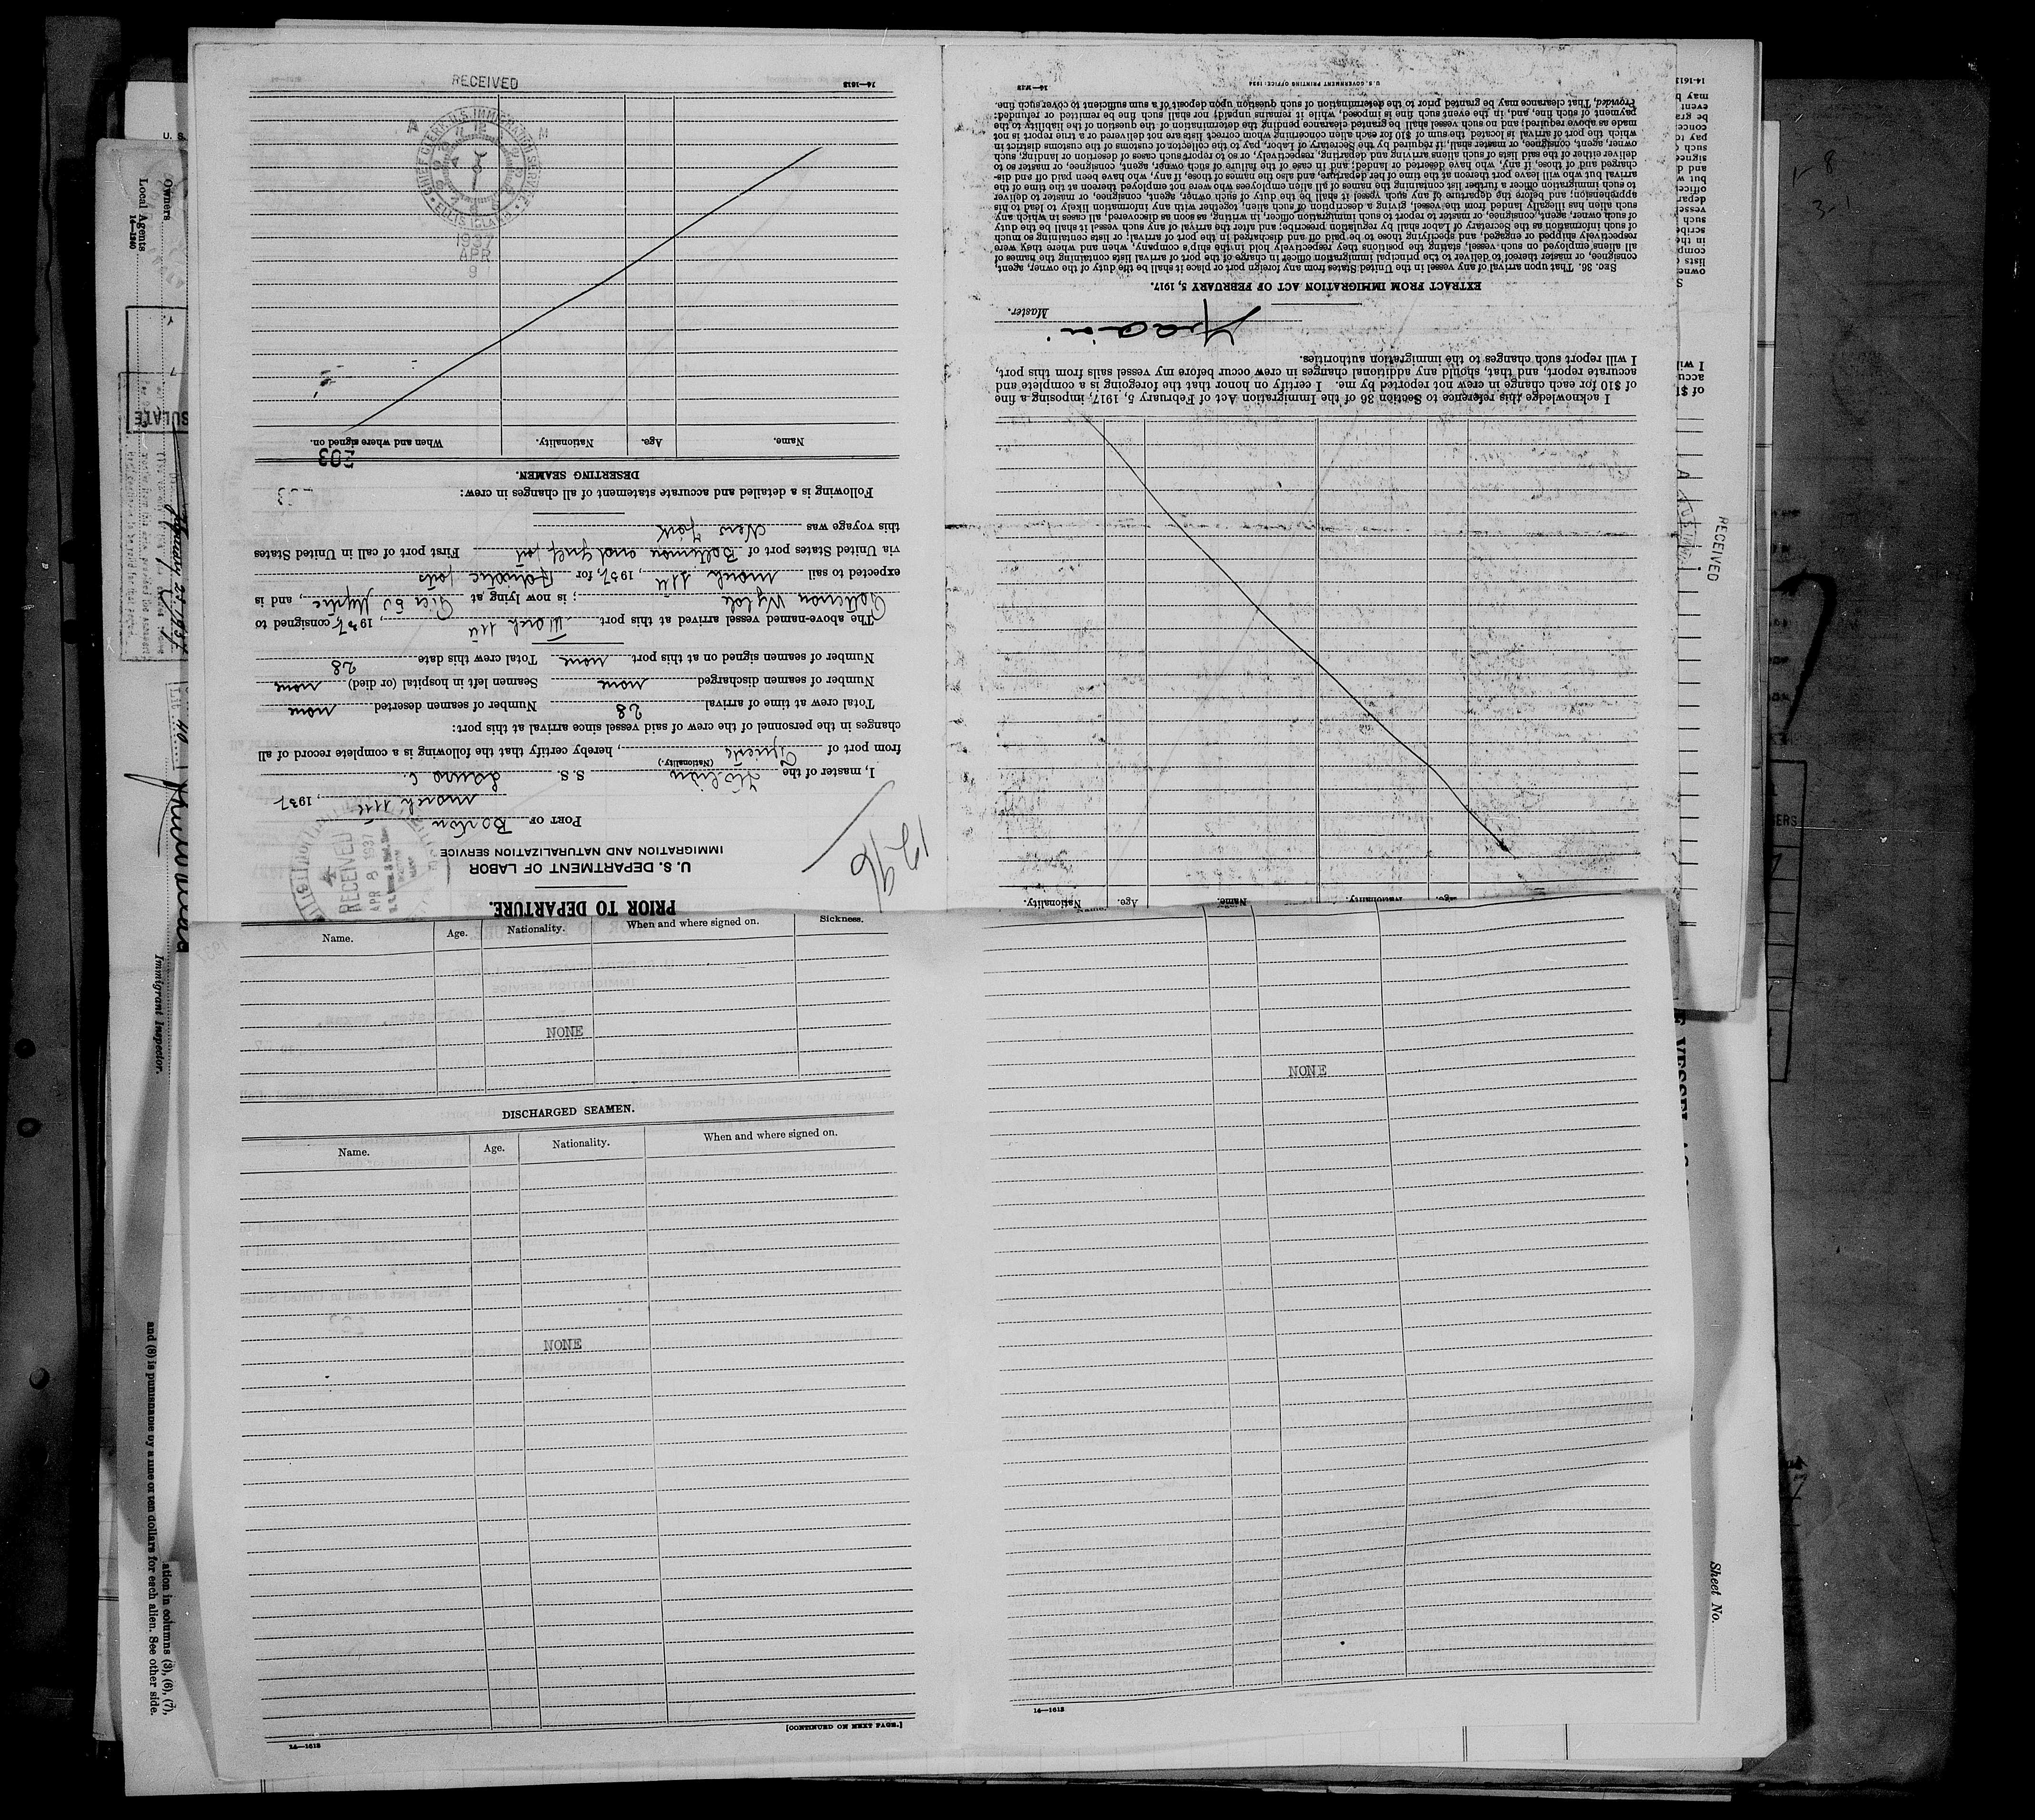 PRIOR TO DEPARTURE.
U. S. DEPARTMENT OF LABOR
IMMIGRATION AND NATURALIZATION SERVICE
PORT OF Boston
March 11th, 1937
I, master of the Italian S. S. Laura C.
(Nationality.)
from port of Trieste, hereby certify that the following is a complete record of all
changes in the personnel of the crew of said vessel since arrival at this port:
Total crew at time of arrival 28 Number of seamen deserted none
Number of seamen discharged none Seamen left in hospital (or died) none
Number of seamen signed on at this port none Total crew this date 28
The above-named vessel arrived at this port March 11th, 1937, consigned to
; is now lying at Pier 50 Mystic, and is
expected to sail March 11th, 1937, for Adriatic ports
via United States port of Baltimore and Gulf port First port of call in United States
this voyage was New York
Following is a detailed and accurate statement of all changes in crew:
DESERTING SEAMEN.
203
Name. Age. Nationality. When and where signed on.
RECEIVED
CHIEF CLERK U.S. IMMIGRATION SERVICE
ELLIS ISLAND
A M
1937
APR
9
14—1613
RECEIVED
APR 8 1937
1296
Nationality. Age. Name. Nationality. Age.
I acknowledge this reference to Section 36 of the Immigration Act of February 5, 1917, imposing a fine
of $10 for each change in crew not reported by me. I certify on honor that the foregoing is a complete and
accurate report, and that, should any additional changes in crew occur before my vessel sails from this port,
I will report such changes to the immigration authorities.
Master.
EXTRACT FROM IMMIGRATION ACT OF FEBRUARY 5, 1917.
SEC. 36. That upon arrival of any vessel in the United States from any foreign port or place it shall be the duty of the owner, agent,
consignee, or master thereof to deliver to the principal immigration officer in charge of the port of arrival lists containing the names of
all aliens employed on such vessel, stating the positions they respectively hold in the ship's company, when and where they were
respectively shipped or engaged, and specifying those to be paid off and discharged in the port of arrival; or lists containing so much
of such information as the Secretary of Labor shall by regulation prescribe; and after the arrival of any such vessel it shall be the duty
of such owner, agent, consignee, or master to report to such immigration officer, in writing, as soon as discovered, all cases in which any
such alien has illegally landed from the vessel, giving a description of such alien, together with any information likely to lead to his
apprehension; and before the departure of any such vessel it shall be the duty of such owner, agent, consignee, or master to deliver
to such immigration officer a further list containing the names of all alien employees who were not employed thereon at the time of the
arrival but who will leave port thereon at the time of her departure, and also the names of those, if any, who have been paid off and dis-
charged and of those, if any, who have deserted or landed; and in case of the failure of such owner, agent, consignee, or master so to
deliver either of the said lists of such aliens arriving and departing, respectively, or so to report such cases of desertion or landing, such
owner, agent, consignee, or master shall, if required by the Secretary of Labor, pay to the collector of customs of the customs district in
which the port of arrival is located the sum of $10 for each alien concerning whom correct lists are not delivered or a true report is not
made as above required; and no such vessel shall be granted clearance pending the determination of the question of the liability to the
payment of such fine, and, in the event such fine is imposed, while it remains unpaid; nor shall such fine be remitted or refunded:
Provided, That clearance may be granted prior to the determination of such question upon deposit of a sum sufficient to cover such fine.
U. S. GOVERNMENT PRINTING OFFICE: 1934
Name. Age. Nationality. When and where signed on. Sickness.
NONE
DISCHARGED SEAMEN.
Name. Age. Nationality. When and where signed on.
NONE
[CONTINUED ON NEXT PAGE.]
14—1613
NONE
14—1613
Owners
Local Agents
14—1240
Immigrant Inspector.
ation in columns (3), (6), (7),
and (8) is punishable by a fine of ten dollars for each alien. See other side.
RECEIVED
Sheet No.